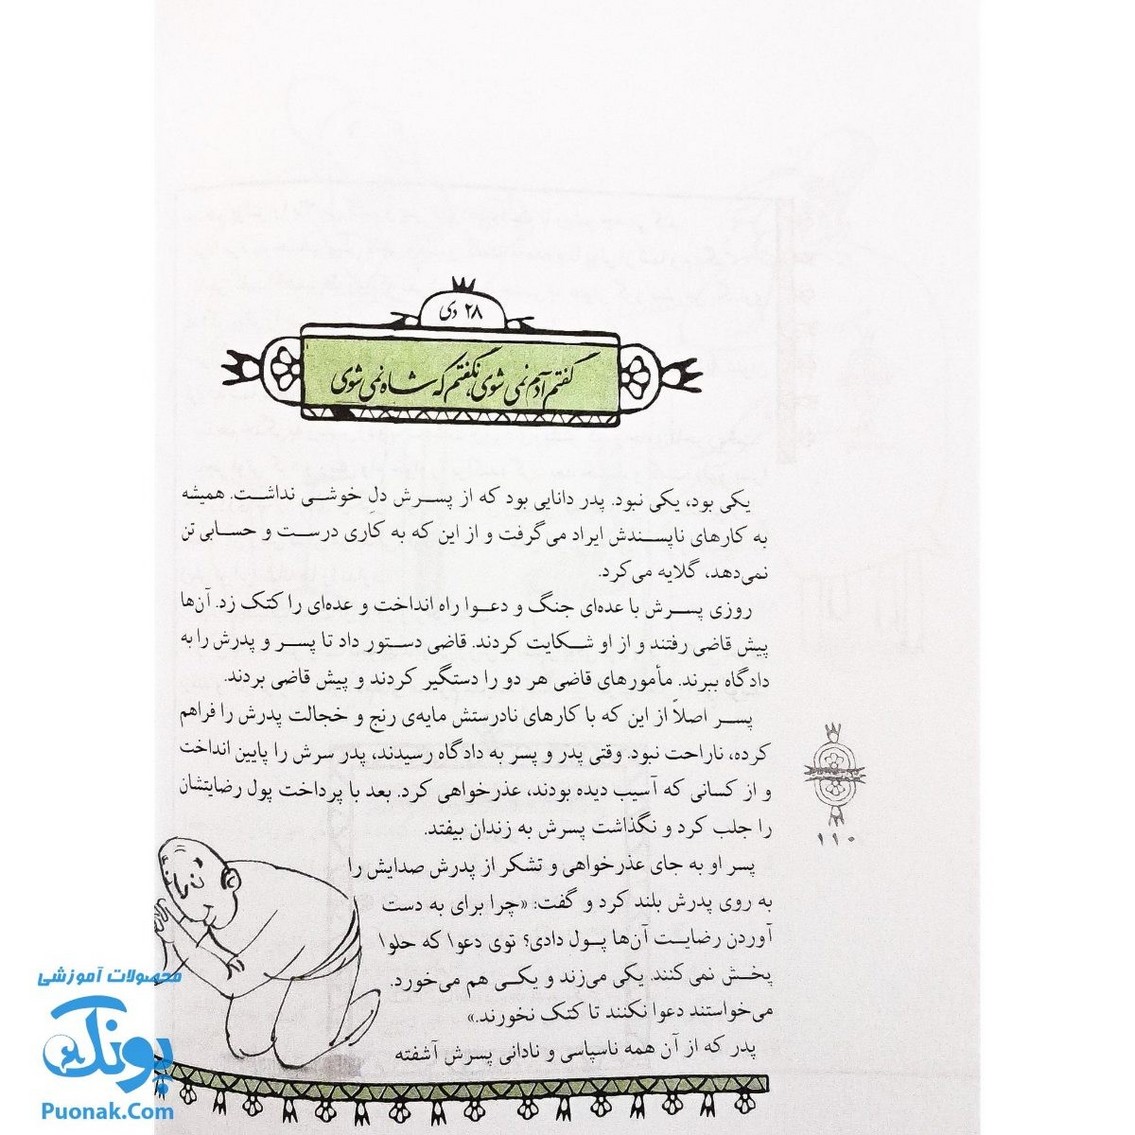 ۲۸ دی
گفتم آدم نمی‌شوی، نگفتم که شاه نمی‌شوی
یکی بود، یکی نبود. پدر دانایی بود که از پسرش دلِ خوشی نداشت. همیشه
به کارهای ناپسندش ایراد می‌گرفت و از این که به کاری درست و حسابی تن
نمی‌دهد، گلایه می‌کرد.
روزی پسرش با عده‌ای جنگ و دعوا راه انداخت و عده‌ای را کتک زد. آن‌ها
پیش قاضی رفتند و از او شکایت کردند. قاضی دستور داد تا پسر و پدرش را به
دادگاه ببرند. مأمورهای قاضی هر دو را دستگیر کردند و پیش قاضی بردند.
پسر اصلاً از این که با کارهای نادرستش مایه‌ی رنج و خجالت پدرش را فراهم
کرده، ناراحت نبود. وقتی پدر و پسر به دادگاه رسیدند، پدر سرش را پایین انداخت
و از کسانی که آسیب دیده بودند، عذرخواهی کرد. بعد با پرداخت پول رضایتشان
را جلب کرد و نگذاشت پسرش به زندان بیفتد.
پسر او به جای عذرخواهی و تشکر از پدرش صدایش را
به روی پدرش بلند کرد و گفت: «چرا برای به دست
آوردن رضایت آن‌ها پول دادی؟ توی دعوا که حلوا
پخش نمی‌کنند. یکی می‌زند و یکی هم می‌خورد.
می‌خواستند دعوا نکنند تا کتک نخورند.»
پدر که از آن همه ناسپاسی و نادانی پسرش آشفته
۱۱۰
محصولات آموزشی
پونک
Puonak.Com